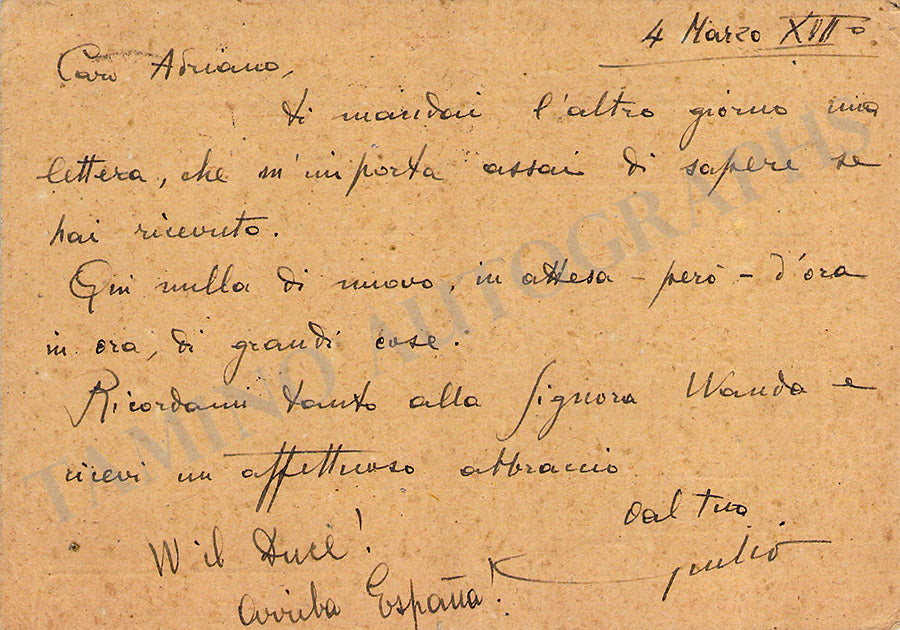 4 Marzo XVIIº
Caro Adriano,
ti mandai l'altro giorno una
lettera, che m'importa assai di sapere se
hai ricevuto.
Qui nulla di nuovo, in attesa - però - d'ora
in ora, di grandi cose.
Ricordami tanto alla Signora Wanda e
ricevi un affettuoso abbraccio
dal tuo
Giulio
W il Duce!
Arriba España!
TAMINO AUTOGRAPHS